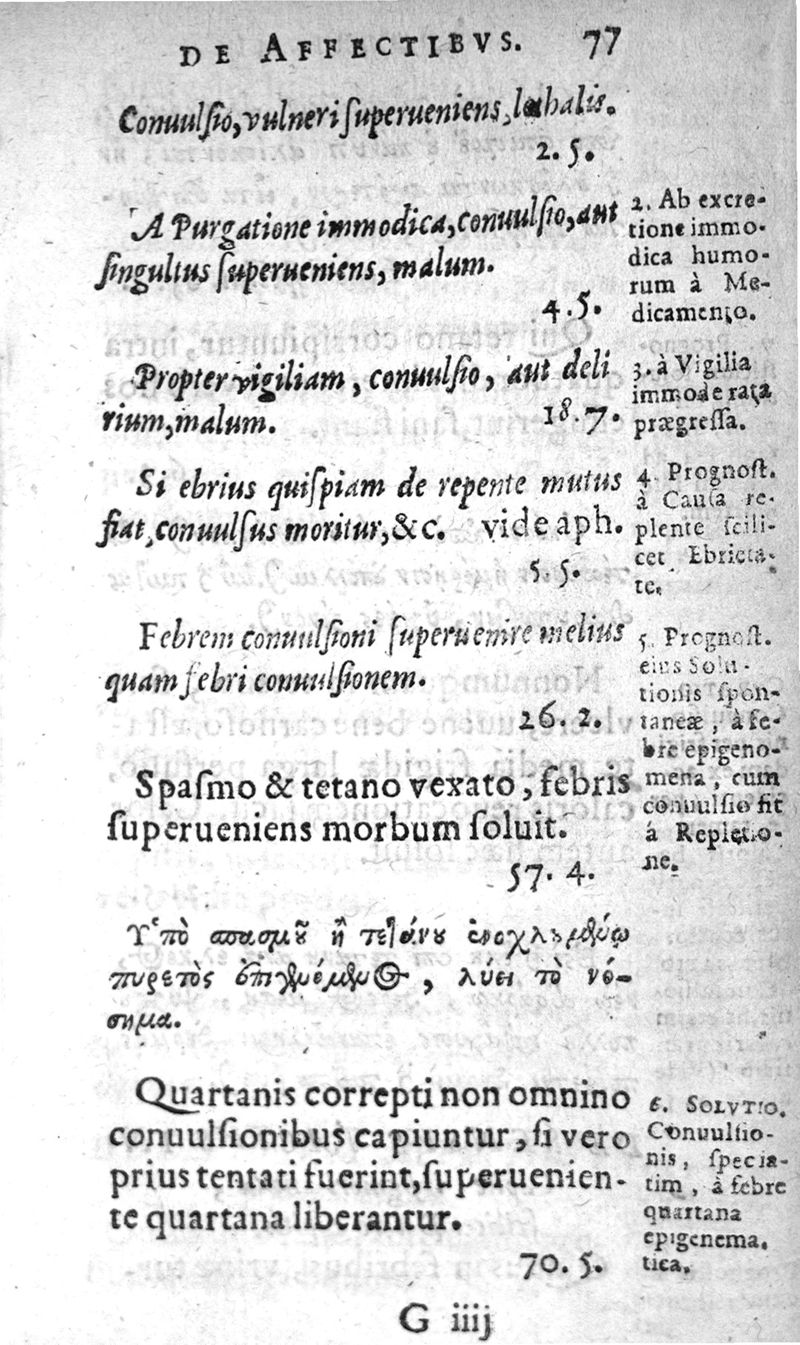 DE AFFECTIBVS. 77
Conuulſio, vulneri ſuperueniens, lethalis.
2. 5.
A Purgatione immodica, conuulſio, aut
ſingultus ſuperueniens, malum.
4. 5.
2. Ab excre-
tione immo-
dica humo-
rum à Me-
dicamento.
Propter vigiliam, conuulſio, aut deli
rium, malum.
18. 7.
3. à Vigilia
immoderata
prægreſſa.
Si ebrius quiſpiam de repente mutus
fiat, conuulſus moritur, &c. vide aph.
5. 5.
4. Prognoſt.
à Cauſa re-
plente ſcili-
cet Ebrieta-
te.
Febrem conuulſioni ſuperuenire melius
quam febri conuulſionem.
26. 2.
Spaſmo & tetano vexato, febris
ſuperueniens morbum ſoluit.
57. 4.
5. Prognoſt.
eius Solu-
tionis ſpon-
taneæ, à fe-
bre epigeno-
mena, cum
conuulſio fit
à Repletio-
ne.
Ὑπὸ σπασμοῦ ἢ τετάνου ἐνοχλουμένῳ
πυρετὸς ἐπιγενόμενος, λύει τὸ νό-
σημα.
Quartanis correpti non omnino
conuulſionibus capiuntur, ſi vero
prius tentati fuerint, ſuperuenien-
te quartana liberantur.
70. 5.
6. SOLVTIO.
Conuulſio-
nis, ſpecia-
tim, à febre
quartana
epigenema.
tica.
G iiij